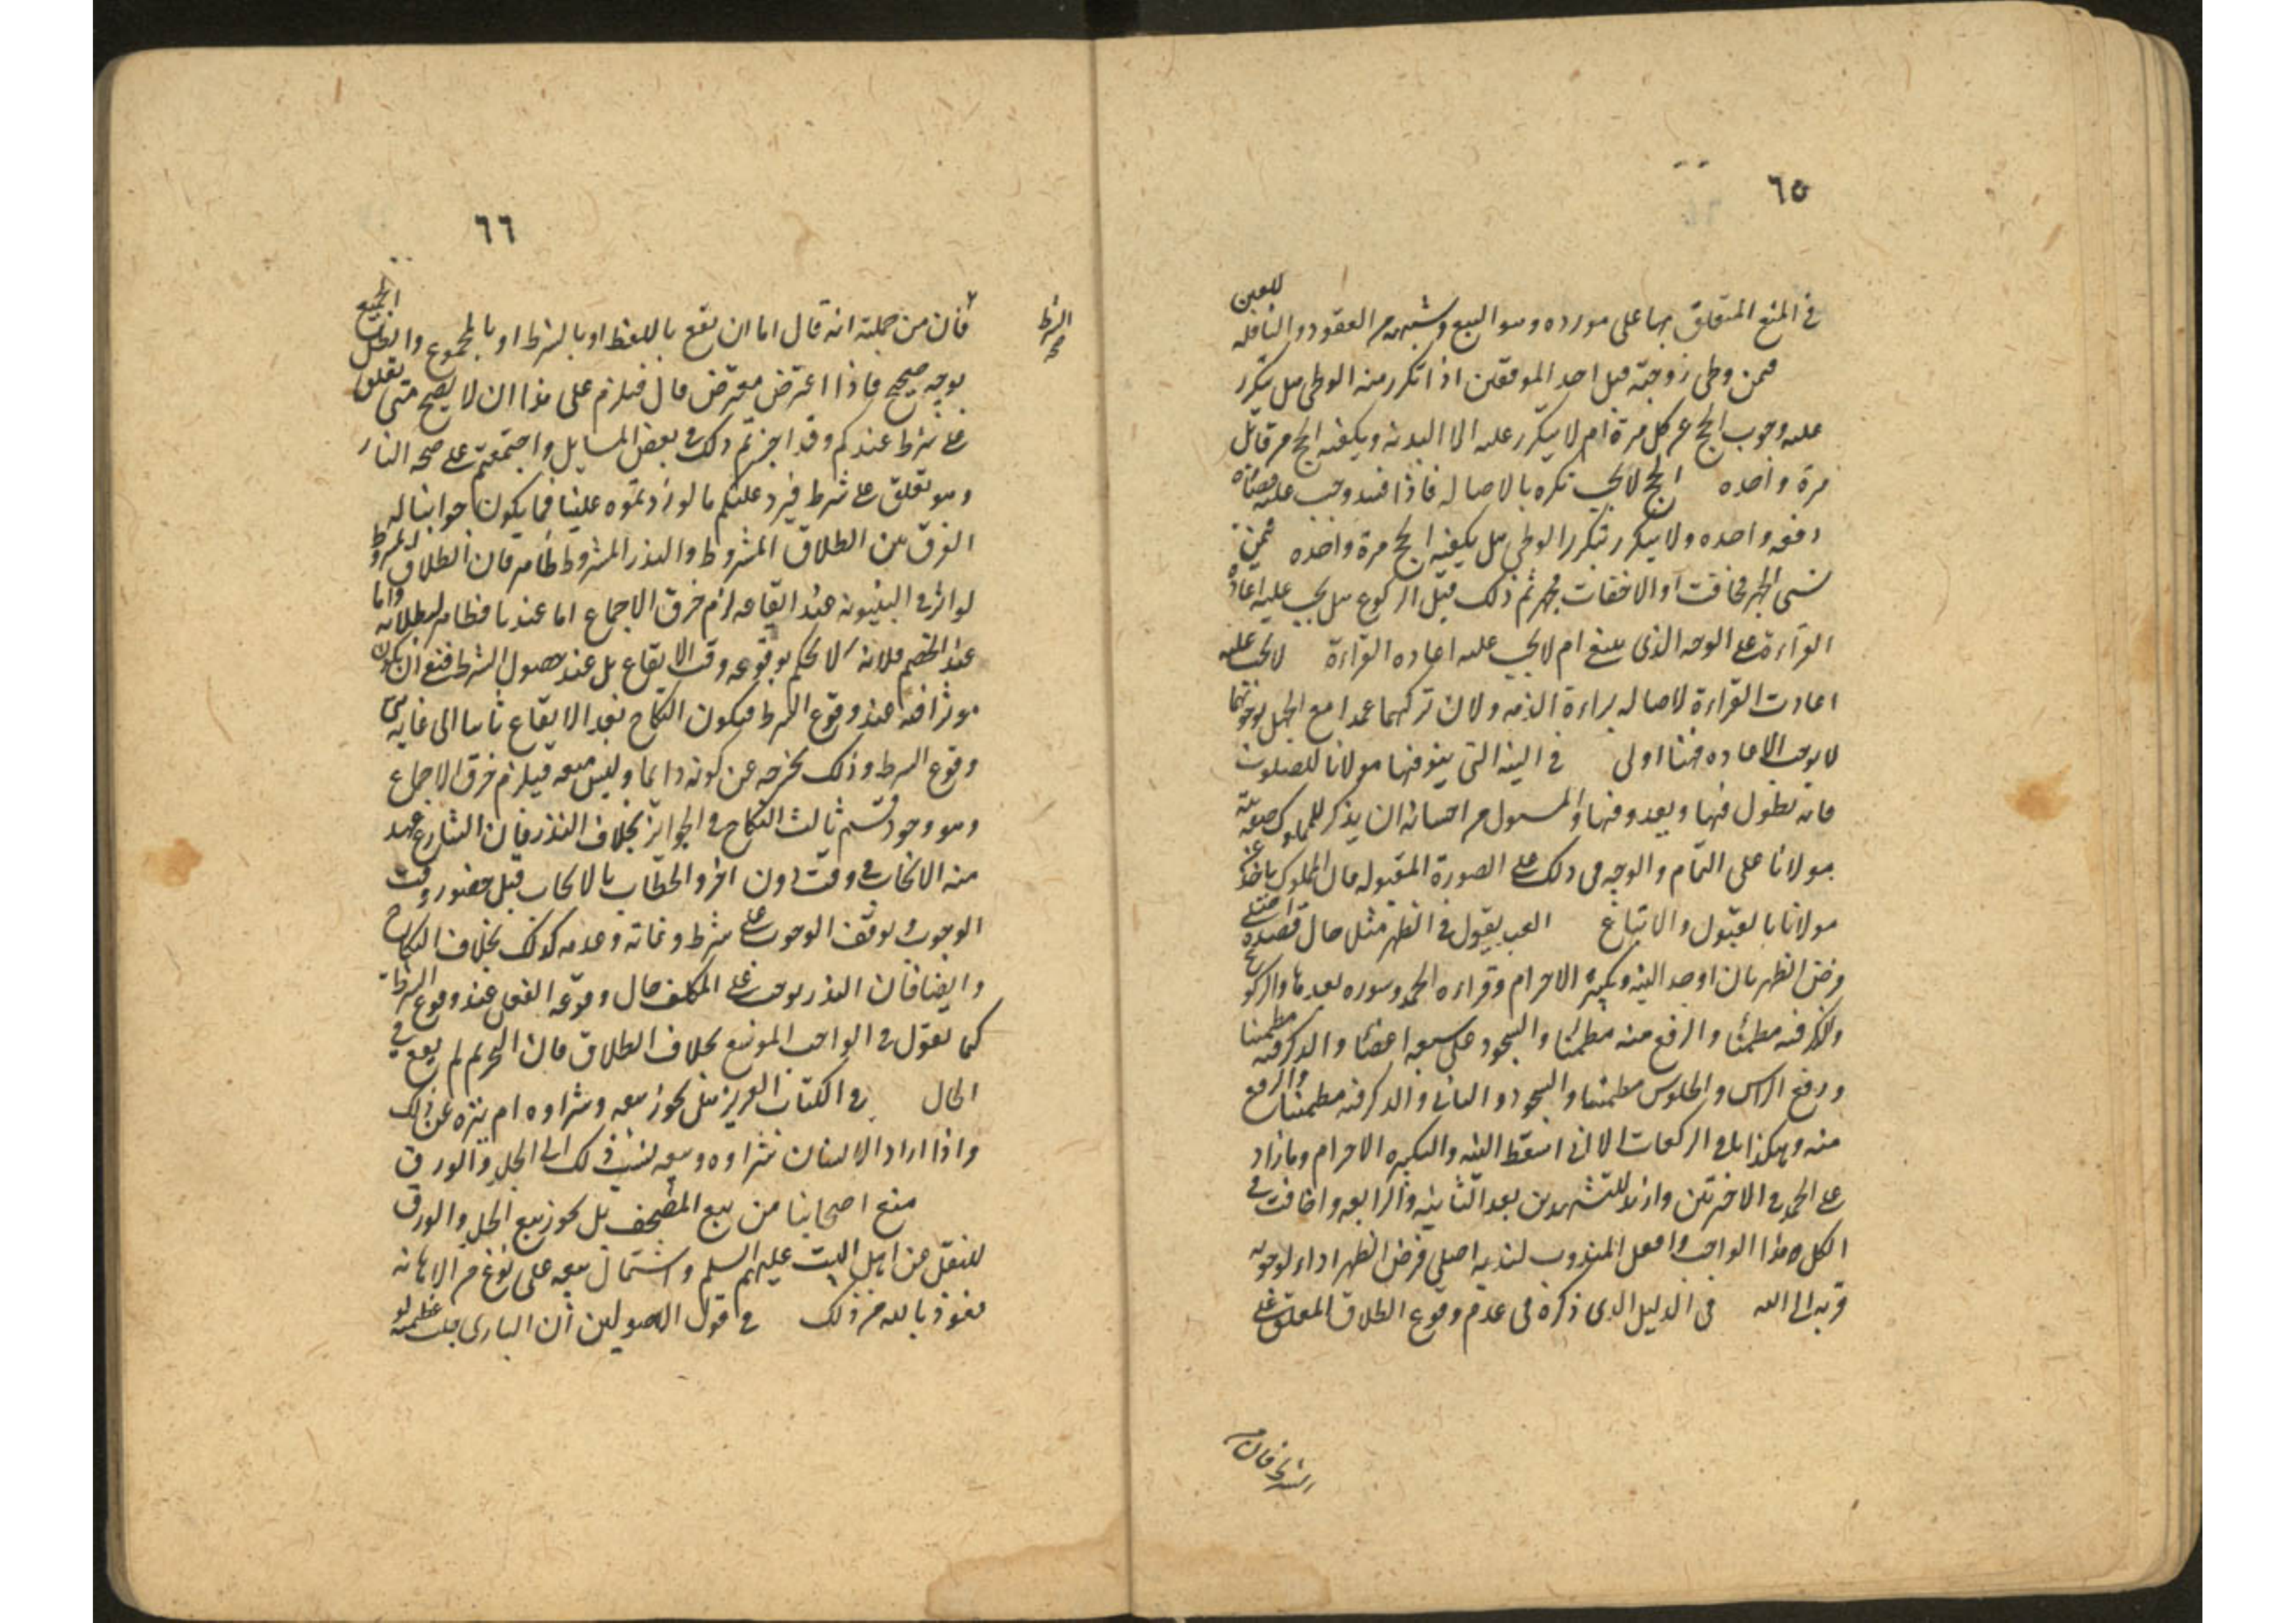 ٦٥
للعين
في المنع المتعلق بها على مورده وهو البيع وشبهه من العقود والنافله
فيمن وطى زوجته قبل احد الموقفين اذا تكرر منه الوطى هل يتكرر
عليه وجوب الحج عن كل مرة ام لا يتكرر عليه الا البدنه ويكفيه الحج من قابل
مرة واحده الحج لا يجب تكره بالاصاله فاذا افسد وجب عليه قضاؤه
دفعه واحده ولا يتكرر بتكرر الوطى بل يكفيه الحج مرة واحده فيمن
نسى الجهر فخافت او الاخفات فجهر ثم ذلك قبل الركوع هل يجب عليه اعادة
القراءة على الوجه الذى ينبغ ام لا يجب عليه اعاده القراءة لا يجب عليه
اعادت القراءة لاصاله براءة الذمه ولان تركهما عمدا مع الجهل بوجوبهما
لا يوجب الاعاده فهنا اولى في النيه التى ينوفيها مولانا للصلوت
فانه يطول فيها ويعدو فيها والمسول من احسانه ان يذكر للمملوك صفة نية
مولانا على التمام والوجه في ذلك على الصورة المقبوله فان المملوك ياخذ عن
مولانا بالقبول والاتباع العبد يقول في الظهر مثلا حال قصده اصلى
فرض الظهر بان اوجد النيه وتكبيرة الاحرام وقراءه الحمد وسوره بعدها والركوع
والذكر فيه مطمئنا والرفع منه مطمئنا والسجود على سبعه اعضاء والذكر فيه مطمئنا
ورفع الراس والجلوس مطمئنا والسجود الثانى والذكر فيه مطمئنا والرفع
منه وهكذا باقى الركعات الا انى اسقط النيه والتكبيره الاحرام وما زاد
على الحمد في الاخرتين وازيد للتشهدين بعد الثانيه والرابعه واخافت في
الكل هذا الواجب وافعل المندوب لندبه اصلى فرض الظهر اداء لوجوبه
قربه الى الله في الدليل الذى ذكره في عدم وقوع الطلاق المعلق على
الشرط فان من
٦٦
الشرط
صح
فان من جملته انه قال اما ان يقع باللفظ او بالشرط او بالمجموع وابطل الجميع
بوجه صحيح فاذا اعترض معترض قال فيلزم على هذا ان لا يصح متى تعلق
على شرط عندكم وقد اجزتم ذلك في بعض المسايل واجتمعتم على صحه النذر
وهو تعلق على شرط فيرد عليكم ما اوردتموه علينا فما يكون جوابنا له
الفرق بين الطلاق المشروط والنذر المشروط ظاهر فان الطلاق المشروط
لو اثر في البينونه عند ايقاعه لزم خرق الاجماع اما عندنا فظاهر لبطلانه واما
عند الخصم فلانه لا يحكم بوقوعه وقت الايقاع بل عند حصول الشرط فبقى ان يكون
موثرا فيه عند وقوع الشرط فيكون النكاح بعد الايقاع ثابتا الى غايه هى
وقوع الشرط وذلك يخرجه عن كونه دايما وليس متعه فيلزم خرق الاجماع
وهو وجود قسم ثالث النكاح في الجوايز بخلاف النذر فان الشارع عهد
منه الايجاب في وقت دون اخر والخطاب بالايجاب قبل حضور وقت
الوجوب وتوقف الوجوب على شرط وغاته وعدمه كذلك بخلاف النكاح
وايضا فان النذر يوجب على المكلف حال وقوعه الفعل عند وقوع الشرط
كما نقول في الواجب الموسع بخلاف الطلاق فان التحريم لم يقع في
الحال في الكتاب العزيز هل يجوز بيعه وشراوه ام ينزه عن ذلك
واذا اراد الانسان شراوه وبيعه نسب ذلك الى الجلد والورق
منع اصحابنا من بيع المصحف بل يجوز بيع الجلد والورق
للنقل عن اهل البيت عليهم السلم واشتمال بيعه على نوع من الاهانه
نعوذ بالله من ذلك في قول الاصوليين ان البارى جلت عظمته لو